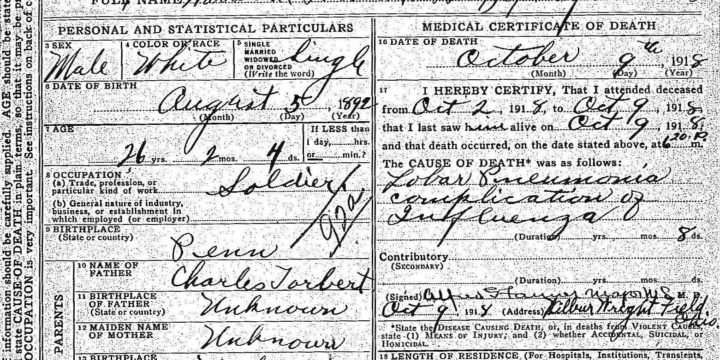 FULL NAME
PERSONAL AND STATISTICAL PARTICULARS
3 SEX
Male
4 COLOR OR RACE
White
5 SINGLE
MARRIED
WIDOWED
OR DIVORCED
(Write the word)
Single
6 DATE OF BIRTH
August 5 1892
(Month) (Day) (Year)
7 AGE
26 yrs. 2 mos. 4 ds.
If LESS than
1 day,....hrs.
or....min.?
8 OCCUPATION
(a) Trade, profession, or
particular kind of work
Soldier
(b) General nature of industry,
business, or establishment in
which employed (or employer)
9 BIRTHPLACE
(State or country)
Penn
PARENTS
10 NAME OF
FATHER
Charles Torbert
11 BIRTHPLACE
OF FATHER
(State or country)
Unknown
12 MAIDEN NAME
OF MOTHER
Unknown
MEDICAL CERTIFICATE OF DEATH
16 DATE OF DEATH
October 9th, 1918
(Month) (Day) (Year)
17 I HEREBY CERTIFY, That I attended deceased
from Oct 2, 1918, to Oct 9, 1918,
that I last saw him alive on Oct 9, 1918,
and that death occurred, on the date stated above, at 6 20 P. m.
The CAUSE OF DEATH* was as follows:
Lobar Pneumonia
complication of
Influenza
(Duration) yrs. mos. 8 ds.
Contributory
(SECONDARY)
(Duration) yrs. mos. ds.
(Signed) M. D.
Oct 9 1918 (Address) Wilbur Wright Field
*State the DISEASE CAUSING DEATH, or, in deaths from VIOLENT CAUSES,
state (1) MEANS OF INJURY; and (2) whether ACCIDENTAL, SUICIDAL, or
HOMICIDAL.
18 LENGTH OF RESIDENCE (For Hospitals, Institutions, Transients,
information should be carefully supplied. AGE should be state
state CAUSE OF DEATH in plain terms, so that it may be pr
OCCUPATION is very important. See instructions on back of c